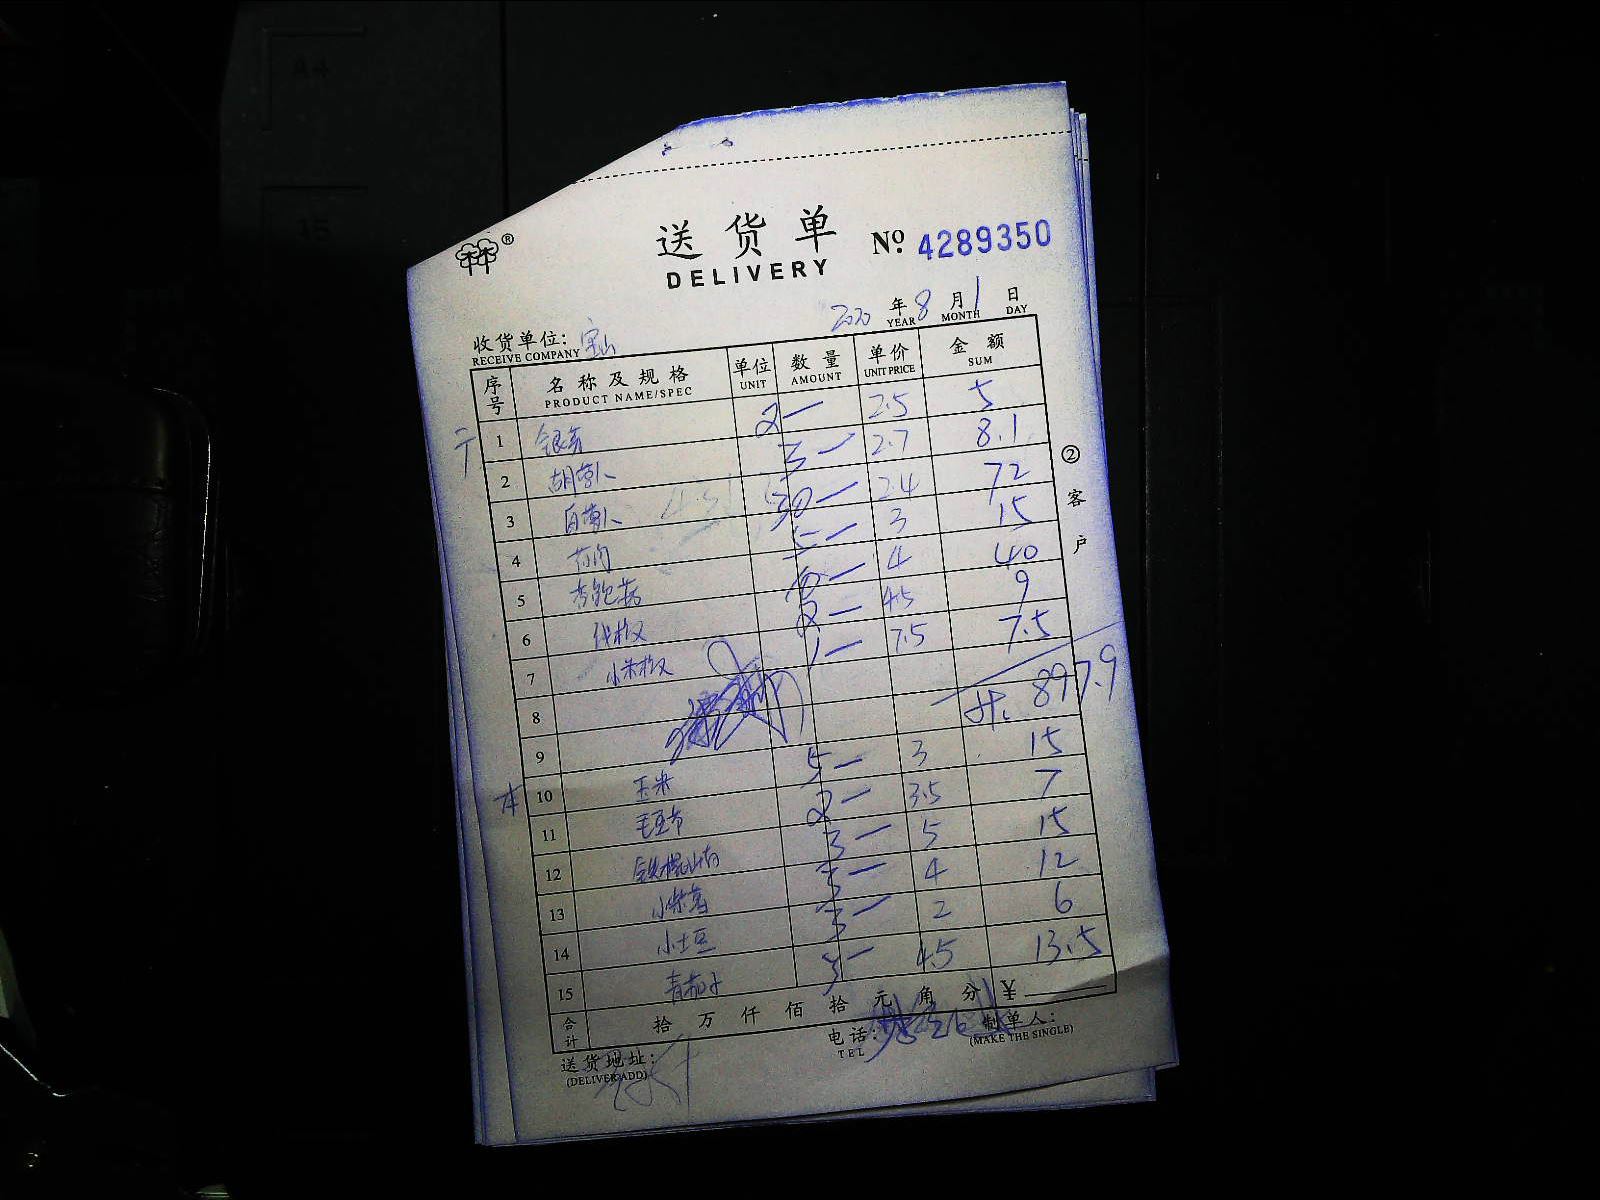 送货单 № 4289350
DELIVERY
2020 年 8 月 1 日
YEAR MONTH DAY
收货单位: 宝山
RECEIVE COMPANY
序号 名称及规格 单位 数量 单价 金额
PRODUCT NAME/SPEC UNIT AMOUNT UNIT PRICE SUM
1 银芽 2 2.5 5
2 胡萝卜 3 2.7 8.1
3 白萝卜 30 2.4 72
4 5 3 15
5 杏鲍菇 10 4 40
6 2 4.5 9
7 小米椒 1 7.5 7.5
8 897.9
9
10 玉米 5 3 15
11 毛豆节 2 3.5 7
12 铁棍山药 3 5 15
13 小紫薯 3 4 12
14 小土豆 3 2 6
15 青椒子 3 4.5 13.5
合计 拾 万 仟 佰 拾 元 角 分 ¥
送货地址: 电话: 制单人:
(DELIVER ADD) TEL (MAKE THE SINGLE)
② 客户